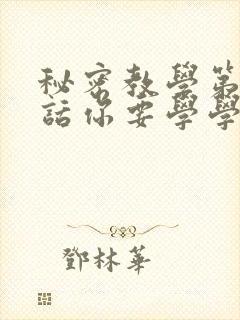 秘密教學第
話你要學學
鄧林華